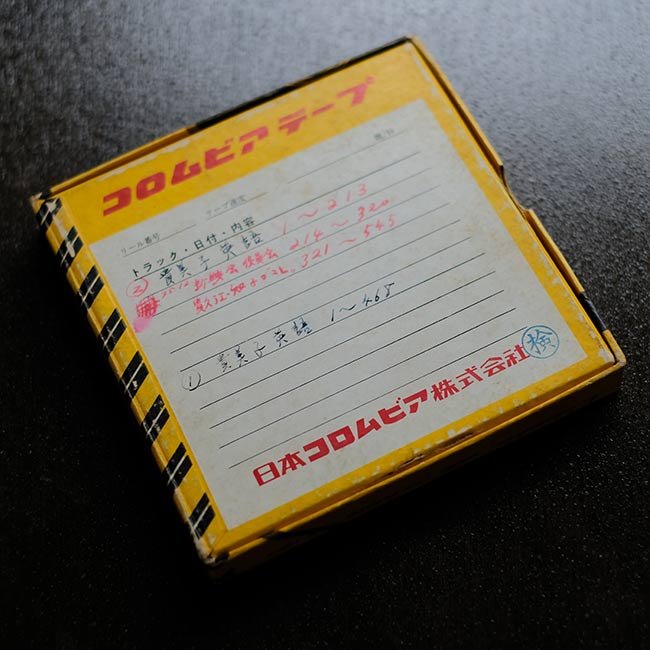 コロムビアテープ
リール番号 テープ速度
トラック・日付・内容
② 貴美子 英語 1～213
役員会 214～320
321～545
① 貴美子 英語 1～465
検
日本コロムビア株式会社